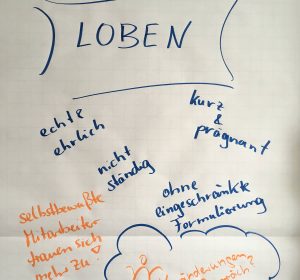 LOBEN
echt &
ehrlich
kurz
&
prägnant
nicht
ständig
ohne
eingeschränkte
Formulierung
selbstbewußte
Mitarbeiter
trauen sich
mehr zu